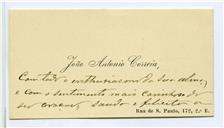 João Antonio Correia,
Com todo o enthusiasmo da sua alma,
e com o sentimento mais carinhoso do
seu coração, saúda e felicita a
Rua de S. Paulo, 172, 2.º E.